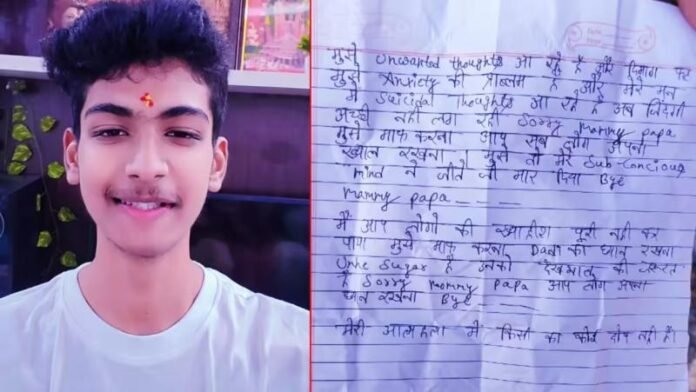 मुझे unwanted thoughts आ रहे है और दिमाग पर
मुझे Anxiety की प्राब्लम है और मेरे मन
मे Suicidal thoughts आ रहे है अब जिंदगी
अच्छी नही लग रही Sorry mammy papa
मुझे माफ करना आप सब लोग अपना
ख्याल रखना। मुझे तो मेरे Sub-Concious
mind ने जीते जी मार दिया Bye
mammy papa
मै आप लोगो की ख्वाहीश पूरी नही कर
पापा मुझे माफ करना Dadi का ध्यान रखना
Sugar है उनको देखभाल की जरूरत
है Sorry mommy papa आप लोग अपना
ध्यान रखना Bye
मेरी आत्महत्या में किसी का कोई दोष नही है।